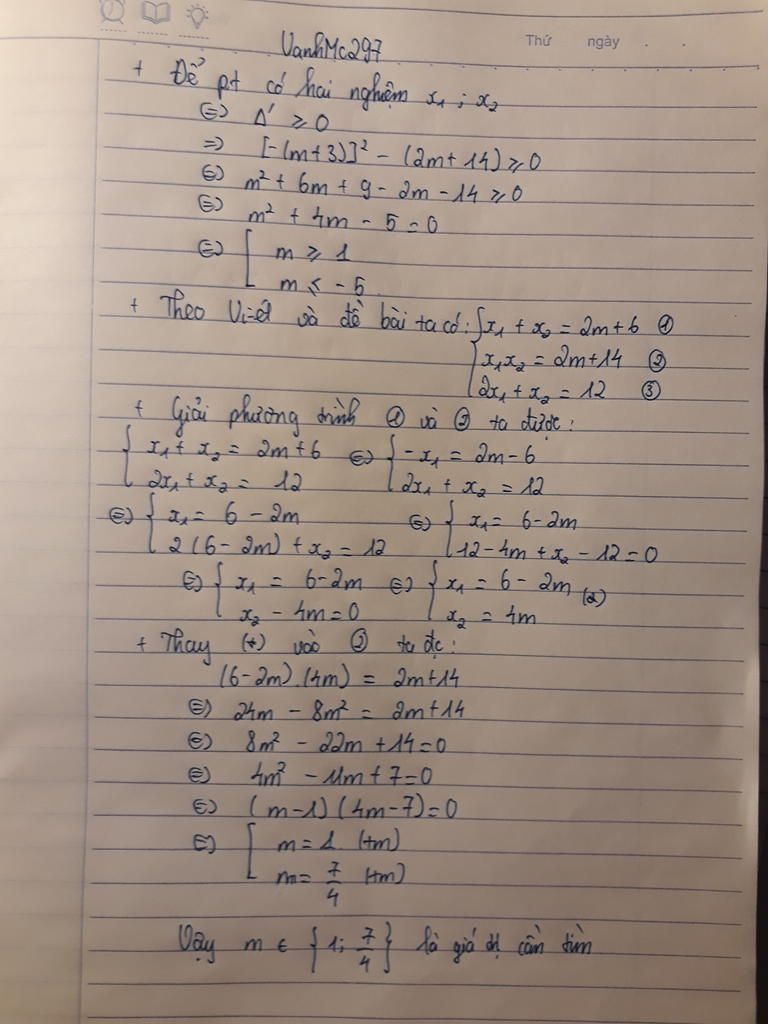 Thứ ngày . .
VanhMc297
+ Để pt có hai nghiệm x₁ ; x₂
⇔ Δ' ≥ 0
⇒ [-(m+3)]² - (2m+14) ≥ 0
⇔ m² + 6m + 9 - 2m - 14 ≥ 0
⇔ m² + 4m - 5 = 0
⇔ [ m ≥ 1
m ≤ -5
+ Theo Vi-ét và đề bài ta có: { x₁ + x₂ = 2m+6 ①
x₁x₂ = 2m+14 ②
2x₁ + x₂ = 12 ③
+ Giải phương trình ① và ③ ta được:
{ x₁ + x₂ = 2m+6 ⇔ { -x₁ = 2m-6
2x₁ + x₂ = 12 2x₁ + x₂ = 12
⇔ { x₁ = 6 - 2m ⇔ { x₁ = 6-2m
2(6-2m) + x₂ = 12 12-4m + x₂ - 12 = 0
⇔ { x₁ = 6-2m ⇔ { x₁ = 6 - 2m
x₂ - 4m = 0 x₂ = 4m
+ Thay (*) vào ② ta đc:
(6-2m).(4m) = 2m+14
⇔ 24m - 8m² = 2m+14
⇔ 8m² - 22m + 14 = 0
⇔ 4m² - 11m + 7 = 0
⇔ (m-1)(4m-7) = 0
⇔ [ m = 1 (tm)
m = 7/4 (tm)
Vậy m ∈ { 1; 7/4 } là giá trị cần tìm